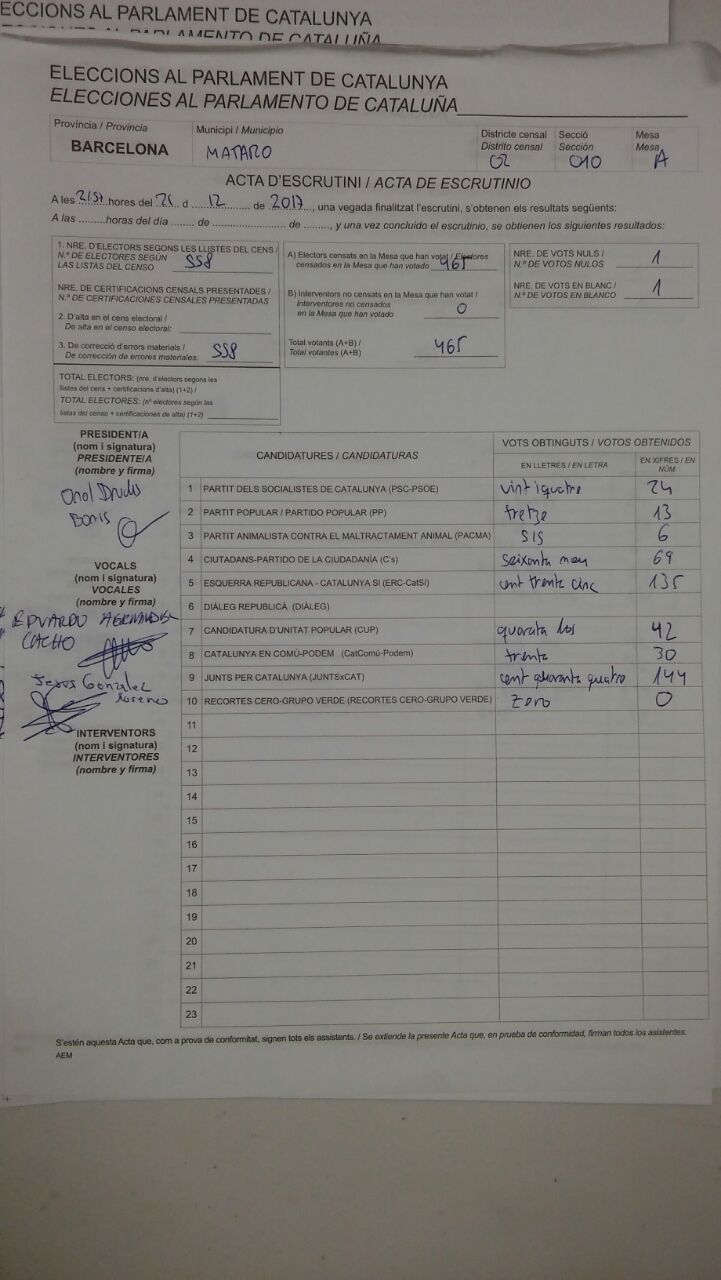 ECCIONS AL PARLAMENT DE CATALUNYA
ELECCIONS AL PARLAMENT DE CATALUNYA
ELECCIONES AL PARLAMENTO DE CATALUÑA
Província / Provincia
BARCELONA
Municipi / Municipio
MATARO
Districte censal
Distrito censal
02
Secció
Sección
010
Mesa
Mesa
A
ACTA D'ESCRUTINI / ACTA DE ESCRUTINIO
A les 21:57 hores del 21 d 12 de 2017, una vegada finalitzat l'escrutini, s'obtenen els resultats següents:
A las .........horas del día ....... de .................... de ........, y una vez concluido el escrutinio, se obtienen los siguientes resultados:
1. NRE. D'ELECTORS SEGONS LES LLISTES DEL CENS /
N.º DE ELECTORES SEGÚN
LAS LISTAS DEL CENSO 558
NRE. DE CERTIFICACIONS CENSALS PRESENTADES /
N.º DE CERTIFICACIONES CENSALES PRESENTADAS
2. D'alta en el cens electoral /
De alta en el censo electoral:
3. De correcció d'errors materials /
De corrección de errores materiales: 558
TOTAL ELECTORS: (nre. d'electors segons les
llistes del cens + certificacions d'alta) (1+2) /
TOTAL ELECTORES: (nº electores según las
listas del censo + certificaciones de alta) (1+2)
A) Electors censats en la Mesa que han votat / Electores
censados en la Mesa que han votado 465
B) Interventors no censats en la Mesa que han votat /
Interventores no censados
en la Mesa que han votado 0
Total votants (A+B) /
Total votantes (A+B) 465
NRE. DE VOTS NULS /
N.º DE VOTOS NULOS 1
NRE. DE VOTS EN BLANC /
N.º DE VOTOS EN BLANCO 1
PRESIDENT/A
(nom i signatura)
PRESIDENTE/A
(nombre y firma)
Oriol
VOCALS
(nom i signatura)
VOCALES
(nombre y firma)
EDUARDO
CACHO
Jesus Gonzalez
Moreno
INTERVENTORS
(nom i signatura)
INTERVENTORES
(nombre y firma)
CANDIDATURES / CANDIDATURAS
VOTS OBTINGUTS / VOTOS OBTENIDOS
EN LLETRES / EN LETRA
EN XIFRES / EN NÚM.
1 PARTIT DELS SOCIALISTES DE CATALUNYA (PSC-PSOE) vint i quatre 24
2 PARTIT POPULAR / PARTIDO POPULAR (PP) tretze 13
3 PARTIT ANIMALISTA CONTRA EL MALTRACTAMENT ANIMAL (PACMA) SIS 6
4 CIUTADANS-PARTIDO DE LA CIUDADANÍA (C's) seixanta nou 69
5 ESQUERRA REPUBLICANA - CATALUNYA SÍ (ERC-CatSí) cent trenta cinc 135
6 DIÀLEG REPUBLICÀ (DIÀLEG)
7 CANDIDATURA D'UNITAT POPULAR (CUP) quaranta dos 42
8 CATALUNYA EN COMÚ-PODEM (CatComú-Podem) trenta 30
9 JUNTS PER CATALUNYA (JUNTSxCAT) cent quaranta quatre 144
10 RECORTES CERO-GRUPO VERDE (RECORTES CERO-GRUPO VERDE) Zero 0
11
12
13
14
15
16
17
18
19
20
21
22
23
S'estén aquesta Acta que, com a prova de conformitat, signen tots els assistents. / Se extiende la presente Acta que, en prueba de conformidad, firman todos los asistentes.
AEM